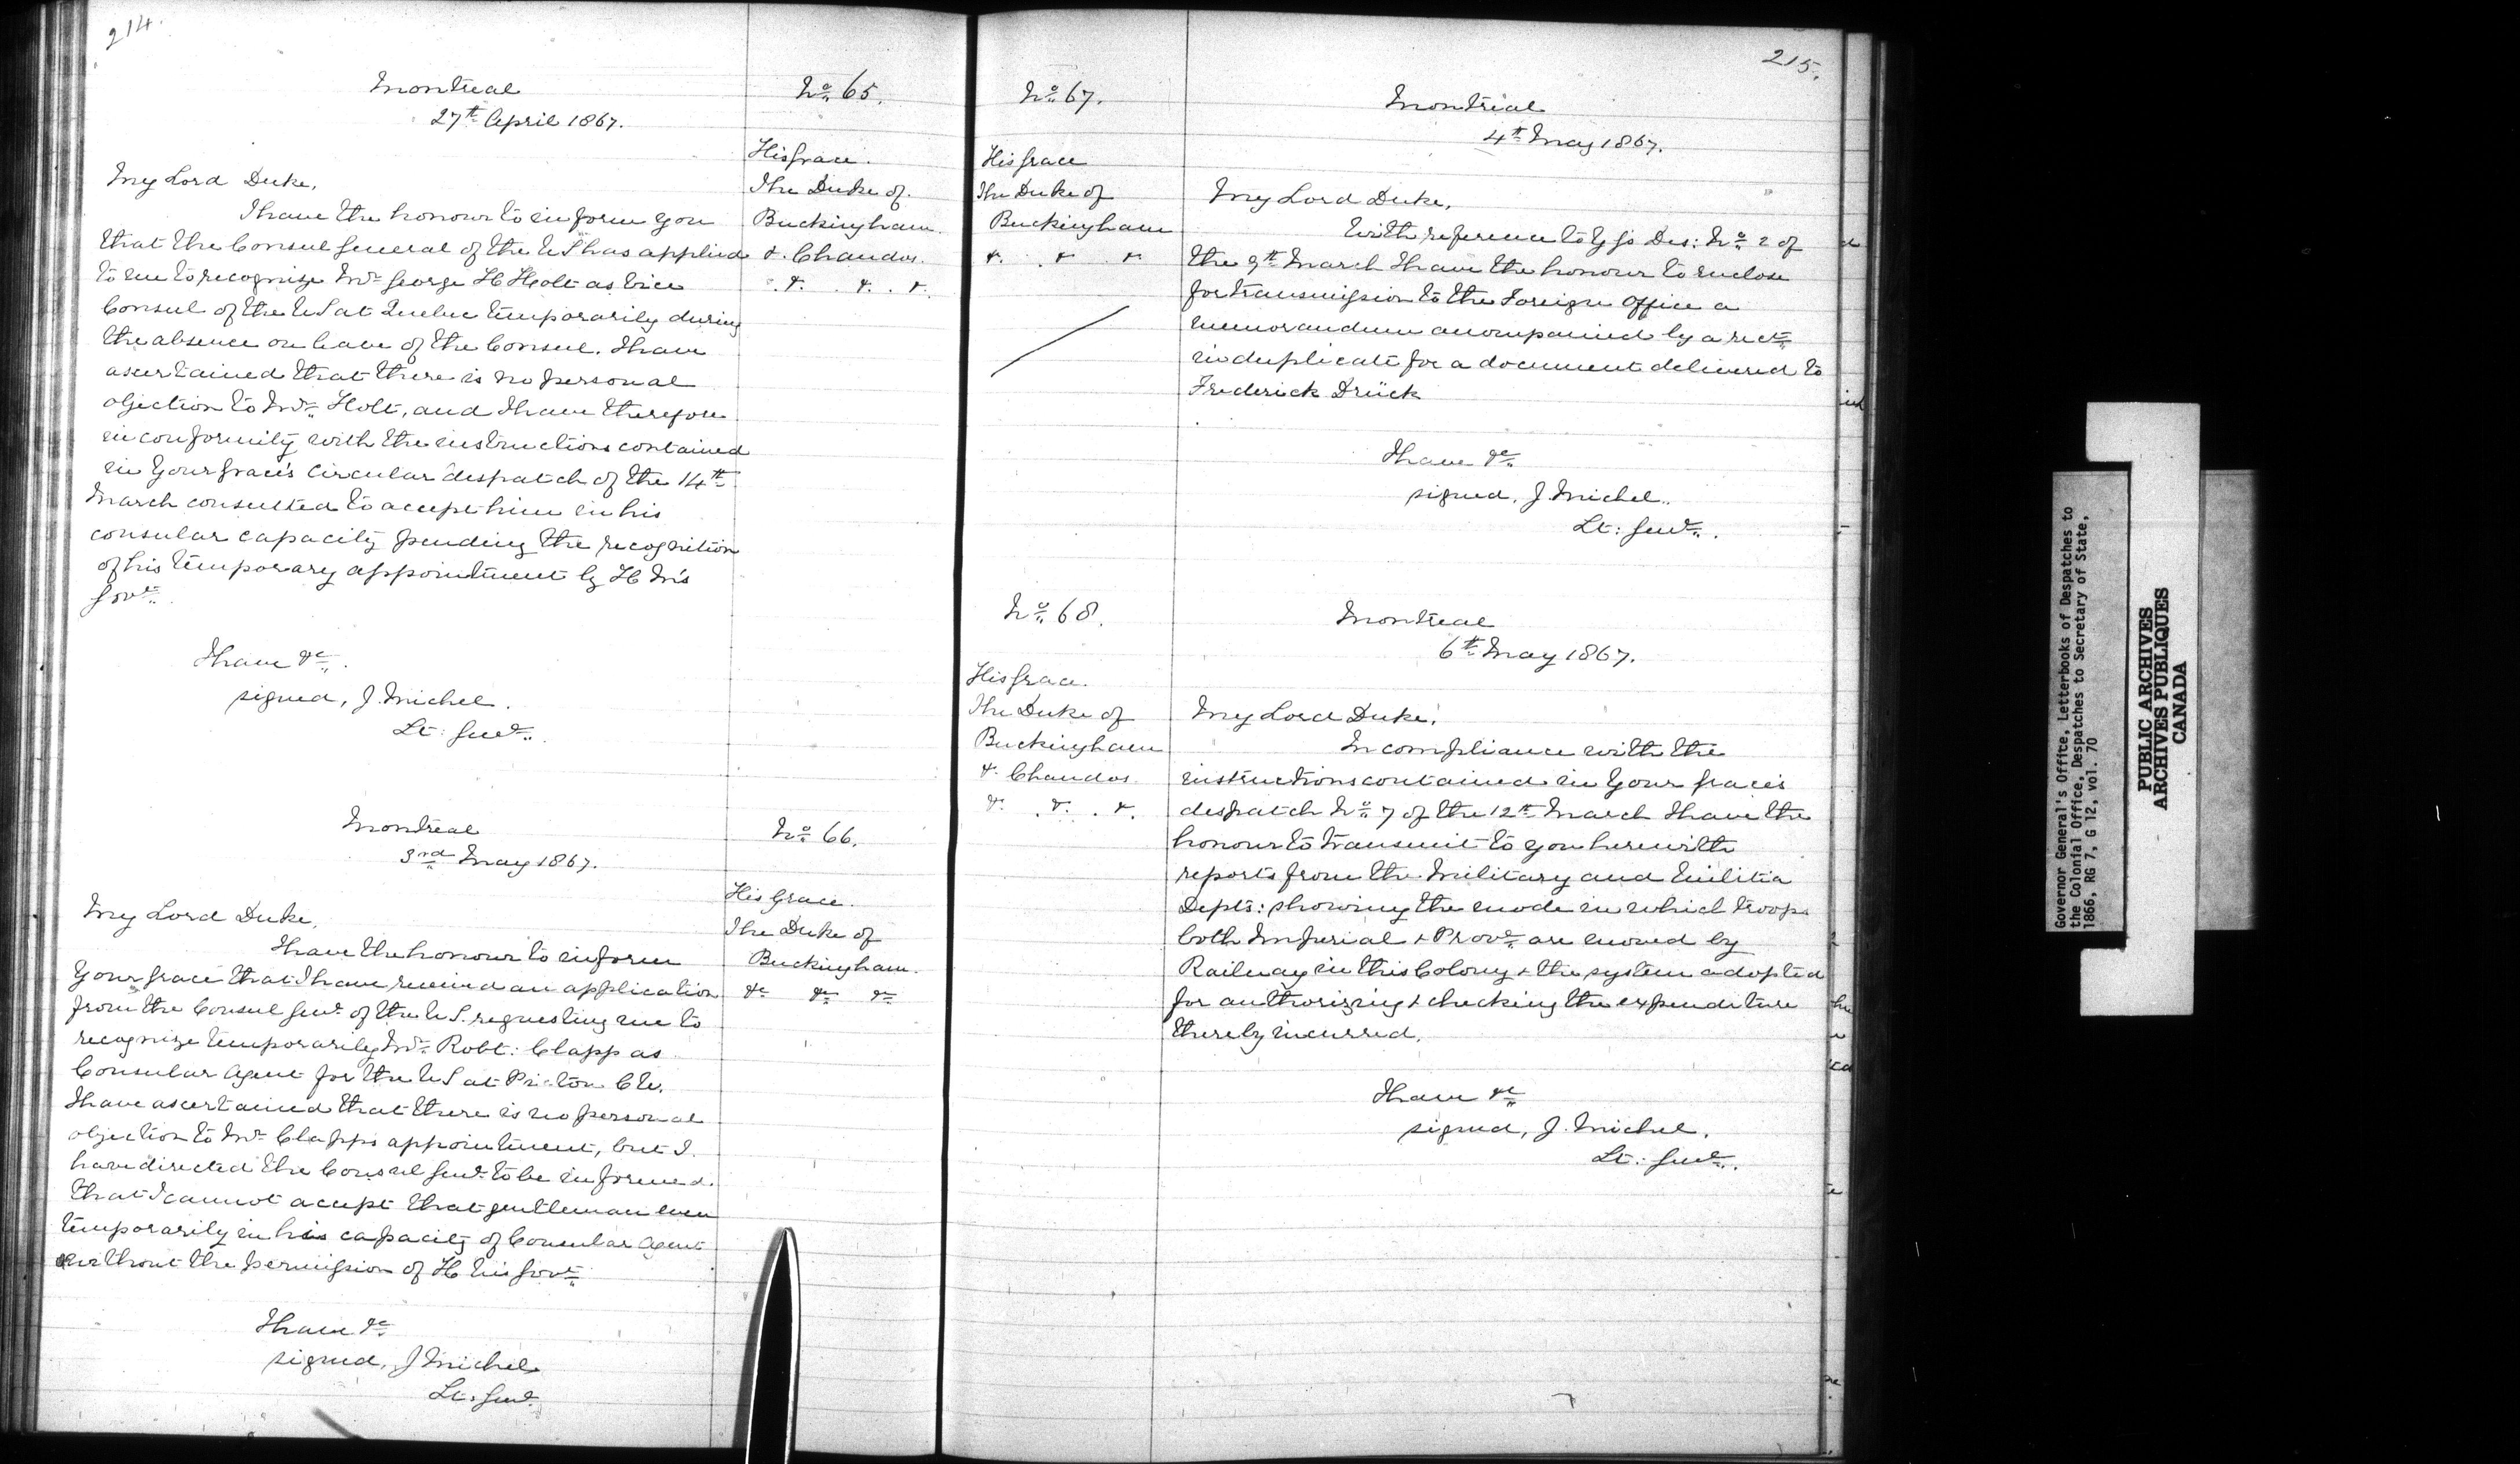 214.
Montreal
27th April 1867.
No. 65.
His Grace.
The Duke of
Buckingham
& Chandos.
&. &. &.
My Lord Duke,
I have the honour to inform you
that the Consul General of the U S has applied
to me to recognize Mr. George H Holt as Vice
Consul of the U S at Quebec temporarily during
the absence on leave of the Consul. I have
ascertained that there is no personal
objection to Mr. Holt, and I have therefore
in conformity with the instructions contained
in Your Grace's Circular despatch of the 14th
March consented to accept him in his
consular capacity pending the recognition
of his temporary appointment by H M's
Govt.
I have &c.
signed, J. Michel.
Lt: Genl.
Montreal
3rd May 1867.
No. 66.
His Grace.
The Duke of
Buckingham.
&c &c &c
My Lord Duke,
I have the honour to inform
Your Grace that I have received an application
from the Consul Genl. of the U S. requesting me to
recognize temporarily Mr. Robt: Clapp as
Consular Agent for the U S at Picton C W.
I have ascertained that there is no personal
objection to Mr. Clapps appointment, but I
have directed the Consul Genl. to be informed
that I cannot accept that gentleman even
temporarily in his capacity of Consular Agent
without the permission of H M's Govt.
I have &c
signed, J Michel
Lt: Genl.
215.
No. 67.
Montreal
4th May 1867.
His Grace
The Duke of
Buckingham
&. &. &.
My Lord Duke,
With reference to Y G's Des: No. 2 of
the 9th March I have the honour to enclose
for transmission to the Foreign Office a
memorandum accompanied by a rect.
in duplicate for a document delivered to
Frederick Drück
I have &c.
signed, J. Michel.
Lt: Genl.
No. 68.
Montreal
6th May 1867.
His Grace.
The Duke of
Buckingham
& Chandos.
&. &. &.
My Lord Duke,
In compliance with the
instructions contained in Your Grace's
despatch No. 7 of the 12th March I have the
honour to transmit to you herewith
reports from the Military and Militia
Depts: showing the mode in which troops
both Imperial & Provl. are moved by
Railway in this Colony & the system adopted
for authorizing & checking the expenditure
thereby incurred.
I have &c
signed, J. Michel.
Lt: Genl.
Governor General's Office, Letterbooks of Despatches to
the Colonial Office, Despatches to Secretary of State,
1866, RG 7, G 12, vol. 70
PUBLIC ARCHIVES
ARCHIVES PUBLIQUES
CANADA